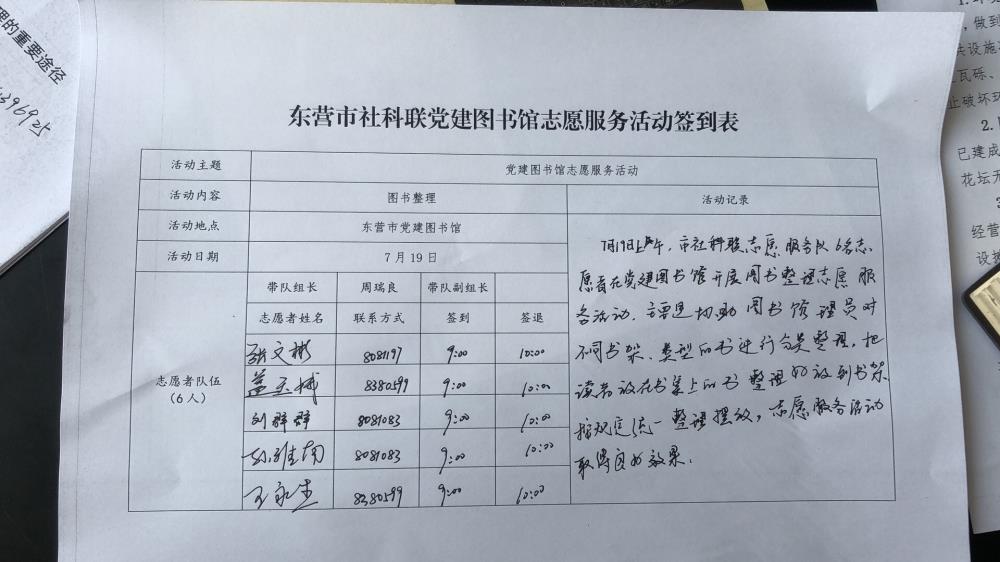 理的重要途径
396925
东营市社科联党建图书馆志愿服务活动签到表
活动主题 党建图书馆志愿服务活动
活动内容 图书整理 活动记录
活动地点 东营市党建图书馆
活动日期 7月19日
志愿者队伍
(6人)
带队组长 周瑞良 带队副组长
志愿者姓名 联系方式 签到 签退
张文彬 8081197 9:00 10:00
盖玉城 8380599 9:00 10:00
刘群群 8081083 9:00 10:00
8081083 9:00 10:00
王永生 8380599 9:00 10:00
7月19日上午,市社科联志愿服务队6名志
愿者在党建图书馆开展图书整理志愿服
务活动.主要是协助图书馆管理员对
不同书架、类型的书进行分类整理,把
读者放在书桌上的书整理好放到书架
按规定统一整理摆放,志愿服务活动
取得良好效果.
,做到
共设施
瓦砾、
止破坏环
2.
已建成
花坛无
3
经营
设摊